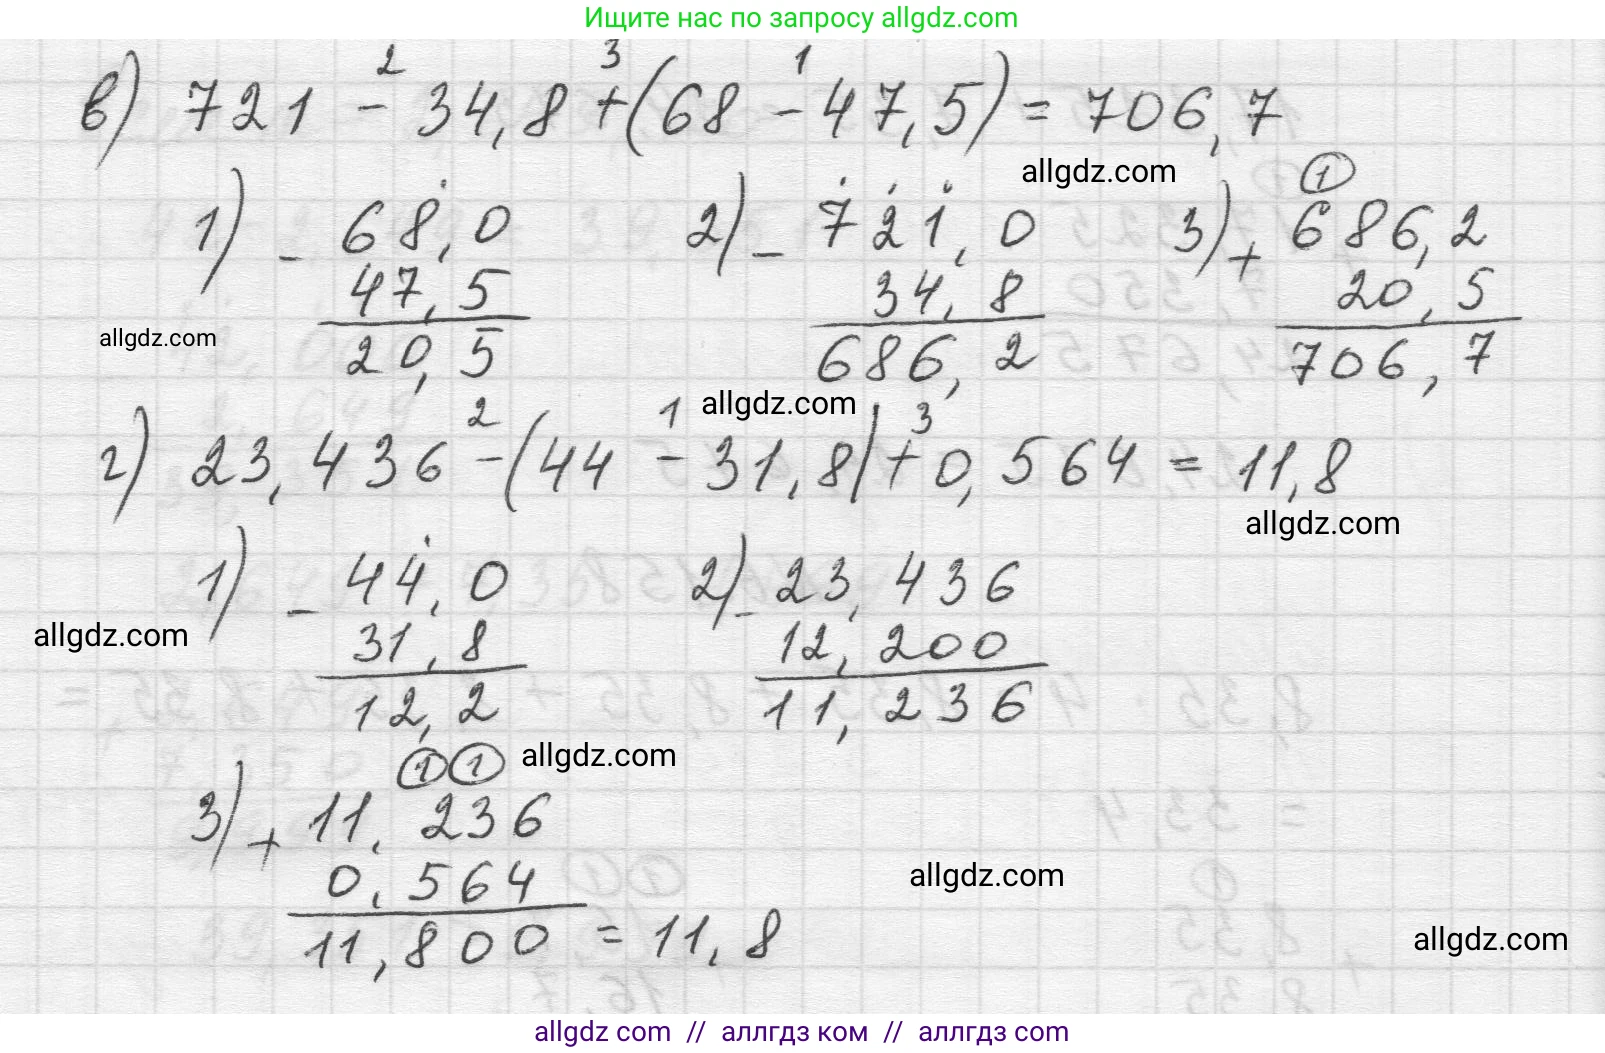 Ищите нас по запросу allgdz.com
2 3 1
в) 721 - 34,8 + (68 - 47,5) = 706,7
allgdz.com
1) - 68,0 2) - 721,0 3) + 686,2
1
47,5 34,8 20,5
allgdz.com
20,5 686,2 706,7
allgdz.com
2 1 3
г) 23,436 - (44 - 31,8) + 0,564 = 11,8
allgdz.com
1) - 44,0 2) - 23,436
allgdz.com
31,8 12,200
12,2 11,236
1 1
allgdz.com
3) + 11,236
0,564
allgdz.com
11,800 = 11,8
allgdz.com
allgdz com // аллгдз ком // аллгдз com